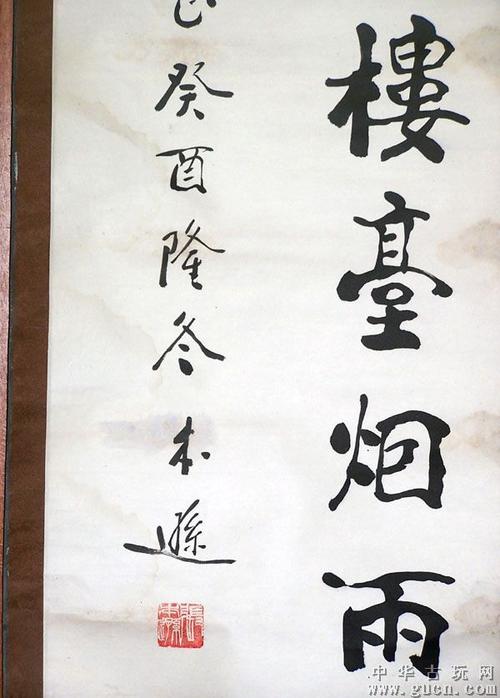 樓臺烟雨
癸酉隆冬本遜
中华古玩网
www.gucn.com